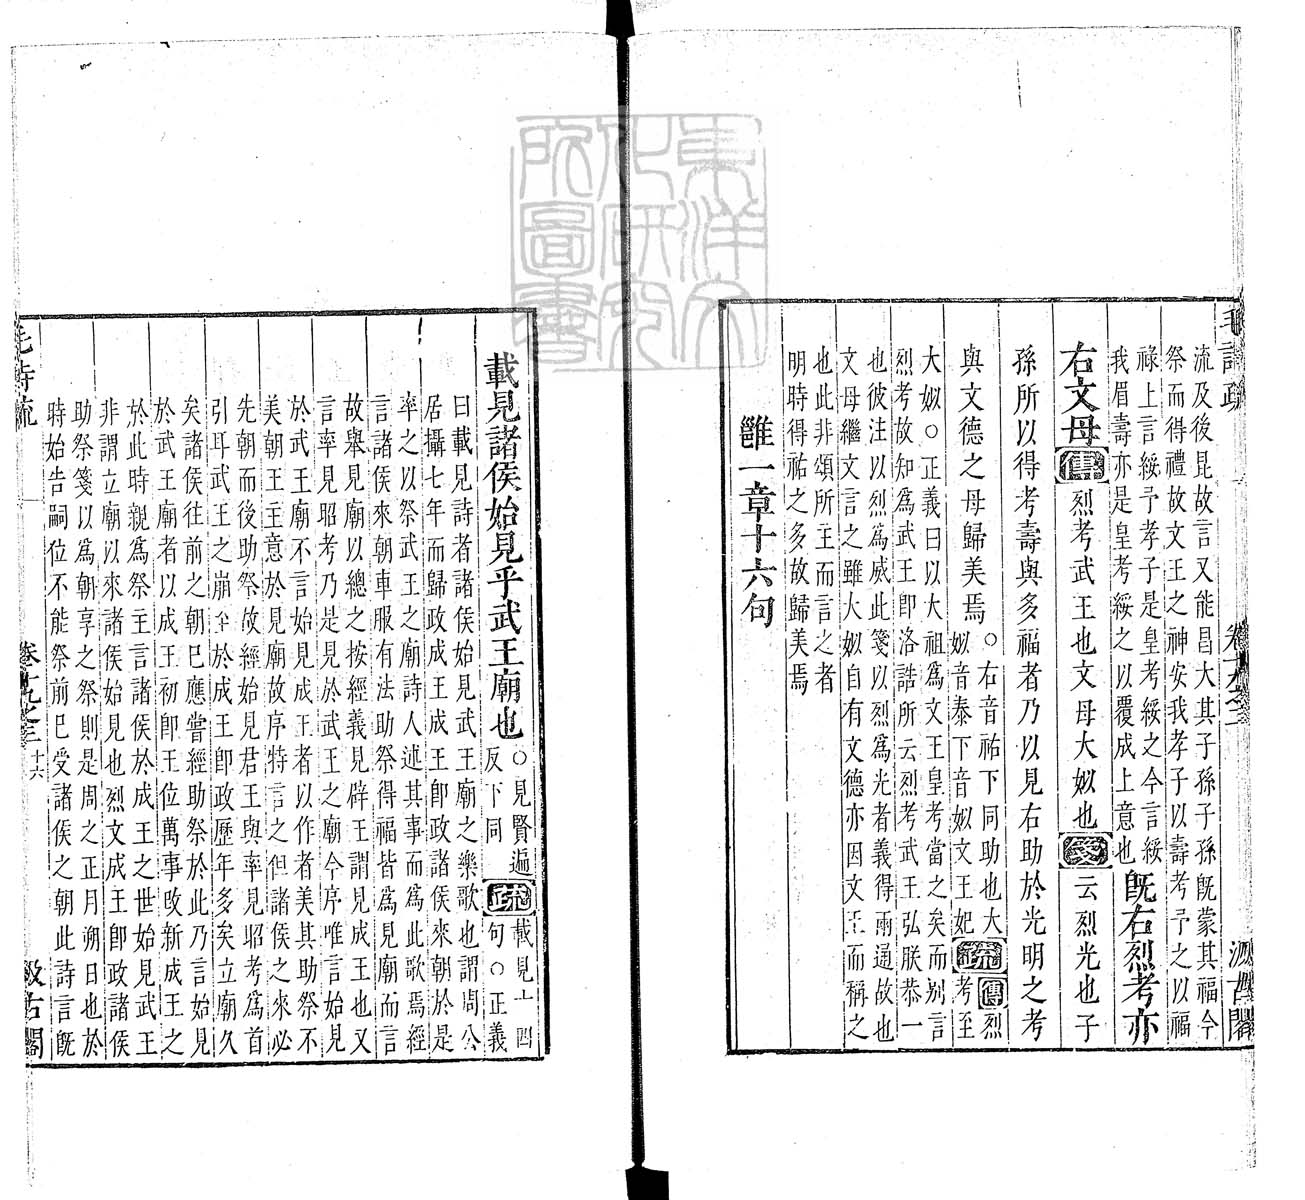 毛詩疏 卷十九之三 汲古閣
流及後昆故言又能昌大其子孫子孫旣蒙其福今
祭而得禮故文王之神安我孝子以壽考予之以福
祿上言綏予孝子是皇考綏之今言綏
我眉壽亦是皇考綏之以覆成上意也
旣右烈考亦
右文母傳烈考武王也文母大姒也箋云烈光也子
孫所以得考壽與多福者乃以見右助於光明之考
與文德之母歸美焉
○右音祐下同助也大
姒音泰下音姒文王妃
疏傳烈考至
大姒○正義曰以大祖爲文王皇考當之矣而別言
烈考故知爲武王卽洛誥所云烈考武王弘朕恭一
也彼注以烈爲威此箋以烈爲光者義得兩通故也
文母繼文言之雖大姒自有文德亦因文王而稱之
也此非頌所主而言之者
明時得祐之多故歸美焉
雝一章十六句
載見諸侯始見乎武王廟也
○見賢遍
反下同
疏
載見十四
句○正義
曰載見詩者諸侯始見武王廟之樂歌也謂周公
居攝七年而歸政成王成王卽政諸侯來朝於是
率之以祭武王之廟詩人述其事而爲此歌焉經
言諸侯來朝車服有法助祭得福皆爲見廟而言
故舉見廟以總之按經義見辟王謂見成王也又
言率見昭考乃是見於武王之廟今序唯言始見
於武王廟不言始見成王者以作者美其助祭不
美朝王主意於見廟故序特言之但諸侯之來必
先朝而後助祭故經始見君王與率見昭考爲首
引耳武王之崩至於成王卽政歷年多矣立廟久
矣諸侯往前之朝巳應嘗經助祭於此乃言始見
於武王廟者以成王初卽王位萬事改新成王之
於此時親爲祭主言諸侯於成王之世始見武王
非謂立廟以來諸侯始見也烈文成王卽政諸侯
助祭箋以爲朝享之祭則是周之正月朔日也於
時始告嗣位不能祭前巳受諸侯之朝此詩言旣
毛詩疏 卷十九之三 十六 汲古閣
東洋文化研究所圖書